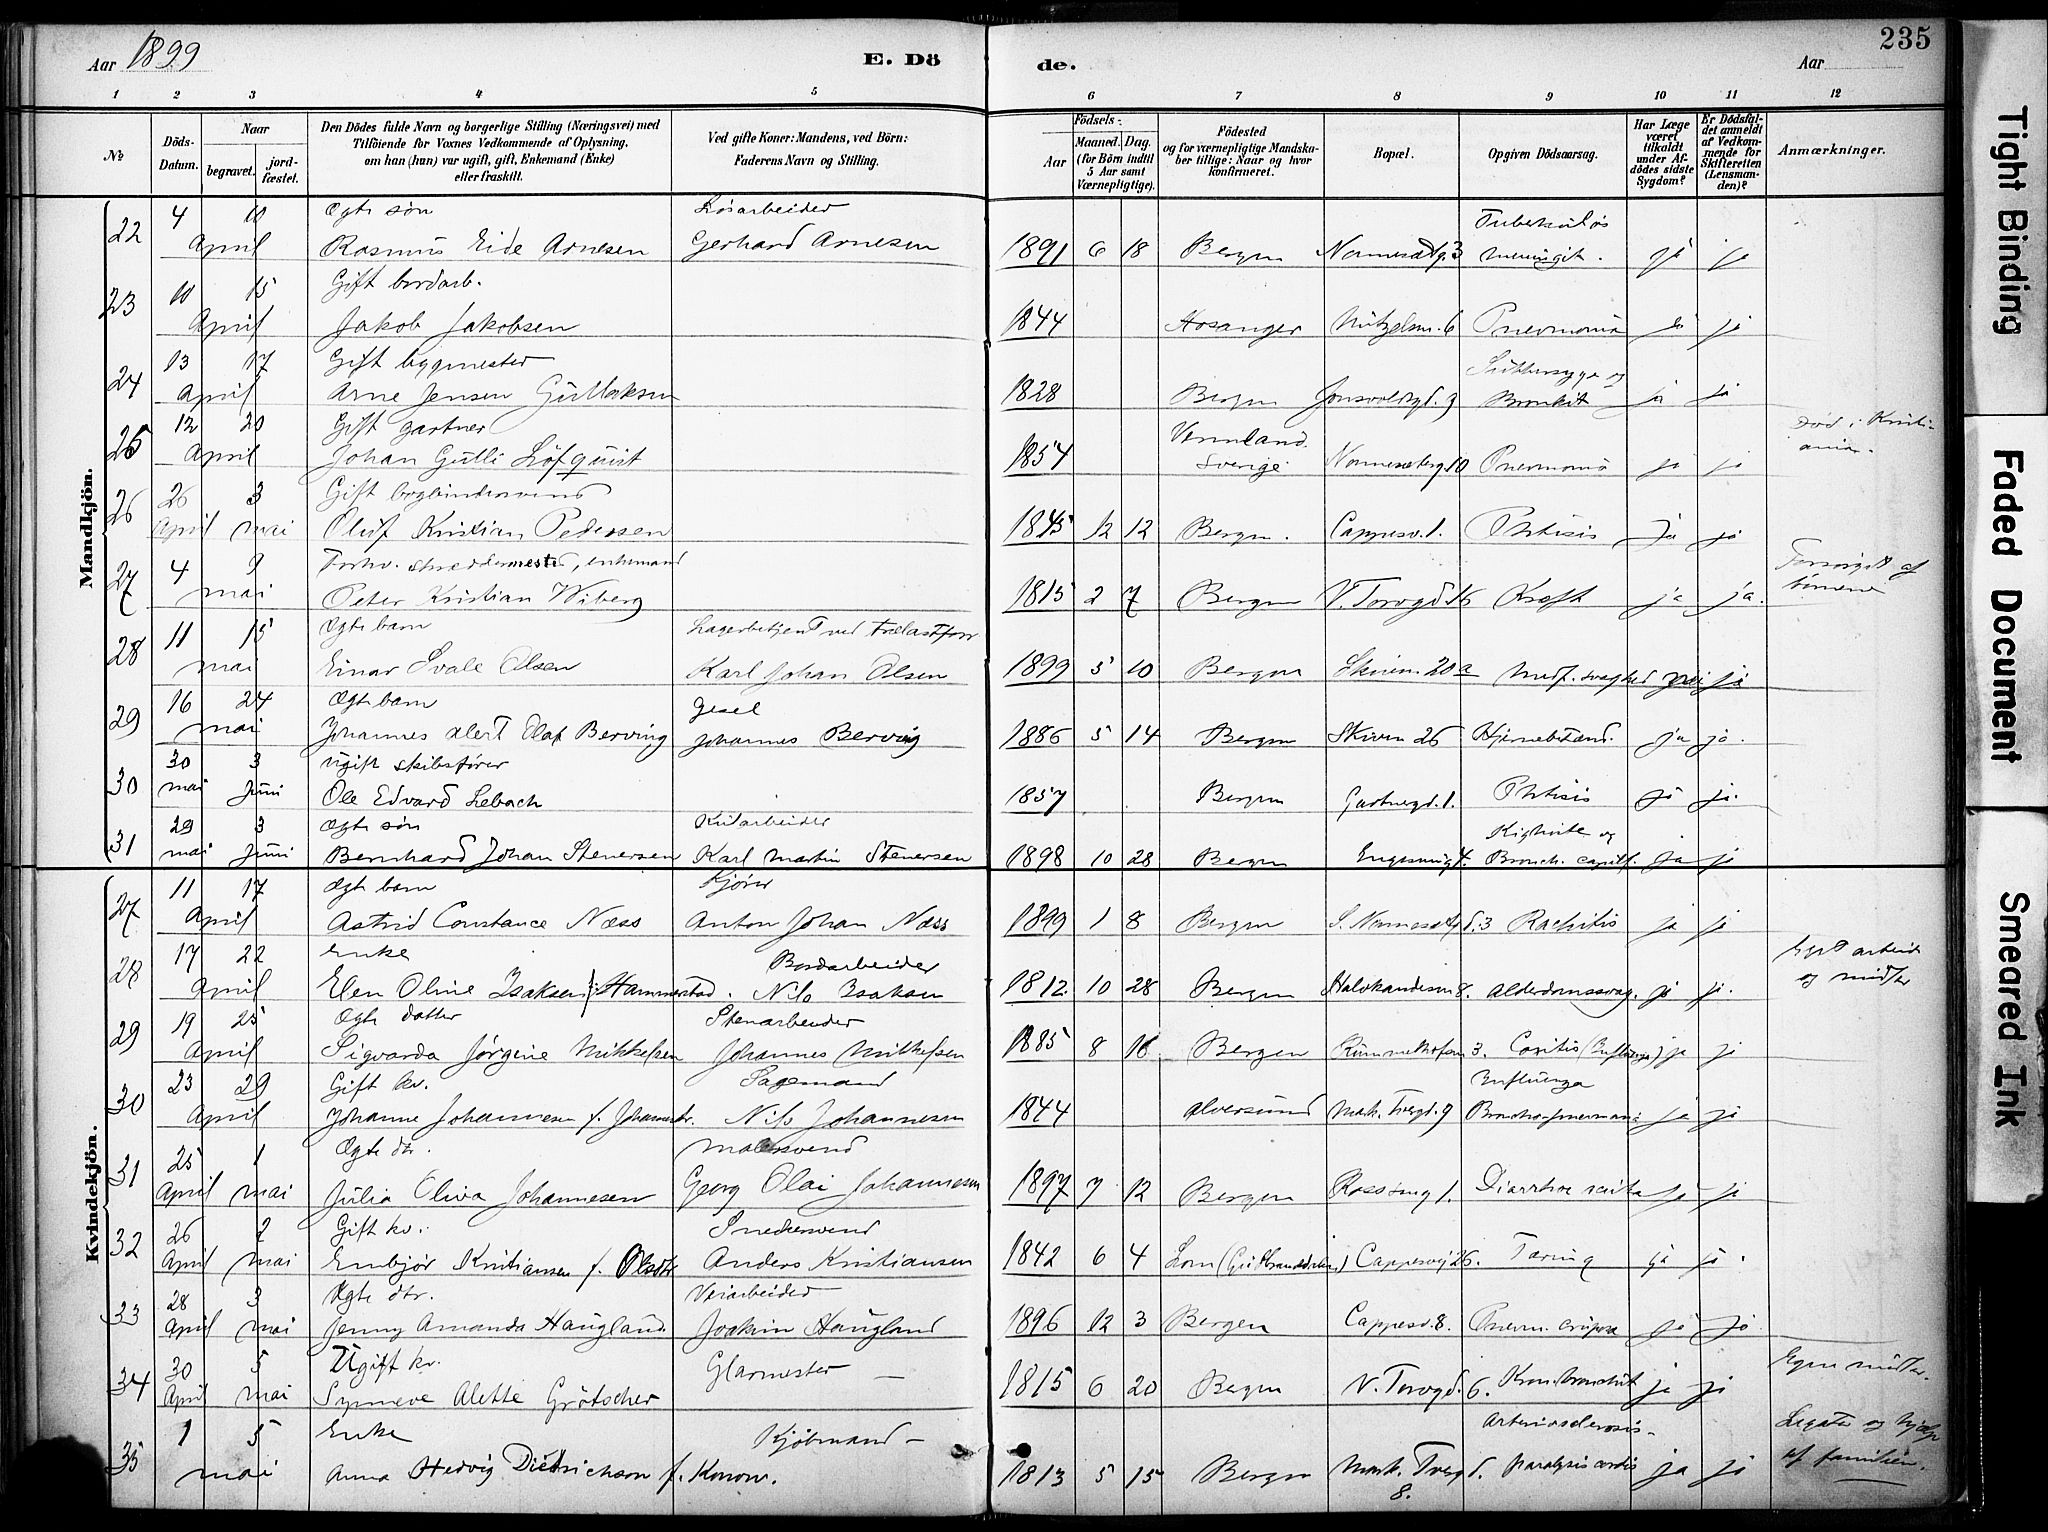 Aar 1899
E. Dö
de.
Aar
235
1 2 3 4 5 6 7 8 9 10 11 12
№
Döds-Datum.
Naar
begravet.
jordfæstet.
Den Dödes fulde Navn og borgerlige Stilling (Næringsvei) med
Tilföiende for Voxnes Vedkommende af Oplysning,
om han (hun) var ugift, gift, Enkemand (Enke)
eller fraskilt.
Ved gifte Koner: Mandens, ved Börn:
Faderens Navn og Stilling.
Födsels-
Aar
Maaned. Dag.
(for Börn indtil
5 Aar samt
Værnepligtige).
Födested
og for værnepligtige Mandska-
ber tillige: Naar og hvor
konfirmeret.
Bopæl.
Opgiven Dödsaarsag.
Har Læge
været
tilkaldt
under Af-
dödes sidste
Sygdom?
Er Dödsfal-
det anmeldt
af Vedkom-
mende for
Skifteretten
(Lensman-
den)?
Anmærkninger.
Mandkjön.
22 4 10 Ægte søn Løsarbeider Tuberkuløs
April Rasmus Eide Arnesen Gerhard Arnesen 1891 6 18 Bergen 3 meningit. ja ja
23 10 15 Gift bordarb.
April Jakob Jakobsen 1844 Hosanger 6 Pneumonia ja ja
24 13 17 Gift bygmester
April Arne Jensen Gullaksen 1828 Bergen Bronkit ja ja
25 12 20 Gift gartner Vermland Død i Kristi-
April Johan Gulli Löfquist 1854 Sverige 10 Pneumonia ja ja ania.
26 26 3 Gift
April mai Oluf Kristian Pedersen 1845 12 12 Bergen. Cappesv. 1. Phtisis ja ja
27 4 9 Forhv. skreddermester, enkemand Forsørget af
mai Peter Kristian Wiberg 1815 2 7 Bergen V. Torvgd. 16 Kræft ja ja. børnene
28 11 15 Ægte barn Lagerbetjent ved Trælastforr
mai Einar Svale Olsen Karl Johan Olsen 1899 5 10 Bergen Skivem. 20a Medf. svaghed nei ja
29 16 24 Ægte barn Gesel
mai Johannes Alert Olaf Berving Johannes Berving 1886 5 14 Bergen Skivem 26 Hjernebetænd. ja ja.
30 30 3 Ugift skibsfører
mai Juni Ole Edvard Lebach 1857 Bergen Gartnergd. 1. Phtisis ja ja.
31 29 3 Ægte søn Kighoste og
mai Juni Bernhard Johan Stenersen Karl Martin Stenersen 1898 10 28 Bergen 4. Bronch. capill. ja ja
Kvindekjön.
27 11 17 Ægte barn Kjører
April Astrid Constance Næss Anton Johan Næss 1899 1 8 Bergen 3 Rachitis ja ja
28 17 22 Enke Bordarbeider Eget arbeide
April Elen Oline Isaksen f. Hammerstad. Nils Isaksen 1812 10 28 Bergen 8. Alderdomssvag. ja ja. og midler
29 19 25 Ægte datter Stenarbeider
April Sigvarda Jørgine Mikkelsen Johannes Mikkelsen 1885 8 Bergen 3. Coxitis (Influenza) ja ja
30 23 29 Gift kv. Sagemand Influenza
April Johanne Johannesen f. Nils Johannesen 1844 Alversund Mark. Tvergd. 9 ja ja
31 25 1 Ægte dtr. Malersvend
April mai Julia Oliva Johannesen Georg Olai Johannesen 1897 7 12 Bergen 1. Diarrhoe acuta ja ja
32 26 2 Gift kv. Snedkersvend
April mai Embjør Kristiansen f. Olsdtr Anders Kristiansen 1842 6 4 Lom (Gudbrandsdalen) 26. Tæring ja ja.
33 28 3 Ægte dtr. Veiarbeider
April mai Jenny Amanda Haugland. Joakim Haugland 1896 12 3 Bergen Cappesv. 8. Pneum. ja ja
34 30 5 Ugift kv. Glarmester — Egne midler.
April mai Synneve Alette Grötscher 1815 6 20 Bergen V. Torvgd. 6. Kron. bronchit ja ja
35 1 5 Enke Kjøbmand — Arteriosclerosis- Legater og hjælp
mai Anna Hedvig Diedrichsen f. Konow. 1813 5 15 Bergen Mark. Tvergd. 8. paralysis cordis ja ja af familien.
Tight Binding
Faded Document
Smeared Ink